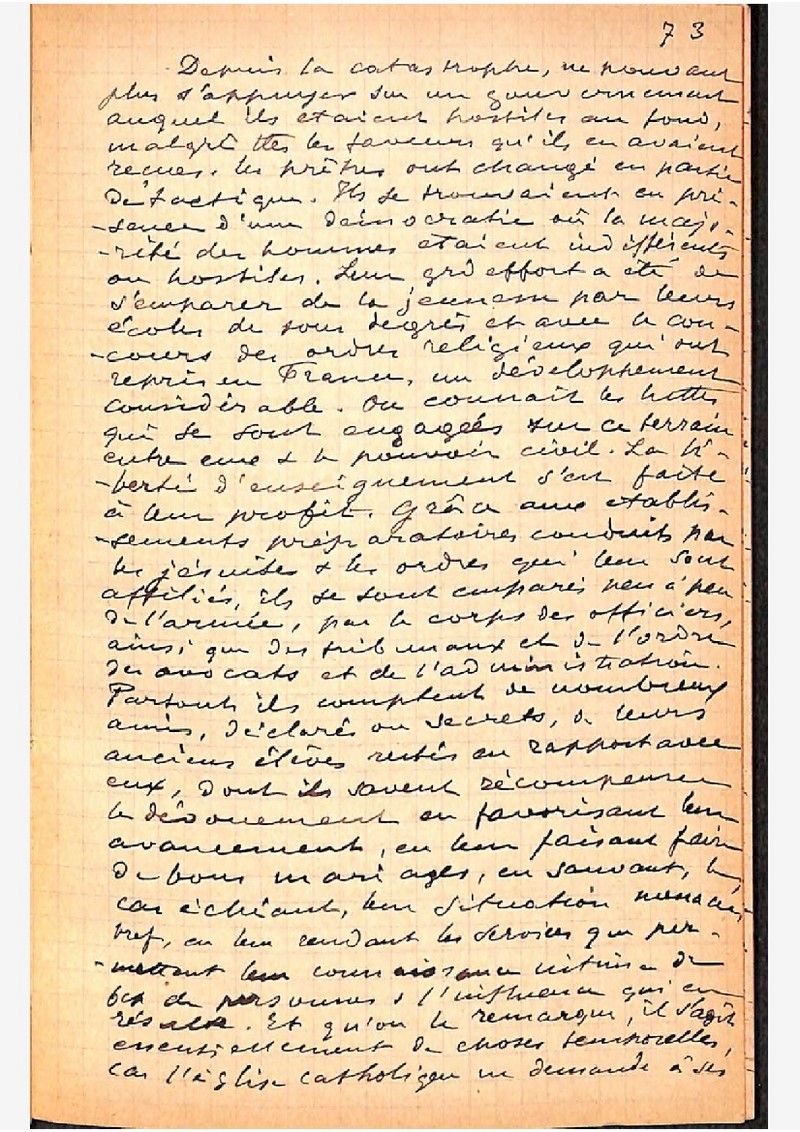 73
Depuis la catastrophe, ne pouvant
plus s'appuyer sur un gouvernement
auquel ils étaient hostiles au fond,
malgré ttes les faveurs qu'ils en avaient
reçues. les prêtres ont changé en partie
de tactique. Ils se trouvaient en pré-
-sence d'une démocratie où la majo-
-rité des hommes étaient indifférents
ou hostiles. Leur grd effort a été de
s'emparer de la jeunesse par leurs
écoles de tous degrés et avec le con-
-cours des ordres religieux qui ont
repris en France, un développement
considérable. On connaît les luttes
qui se sont engagées sur ce terrain
entre eux & le pouvoir civil. La li-
-berté d'enseignement s'est faite
à leur profit. Grâce aux établis-
-sements préparatoires conduits par
les jésuites & les ordres qui leur sont
affiliés, ils se sont emparés peu à peu
de l'armée, par le corps des officiers,
ainsi que des tribunaux et de l'ordre
des avocats et de l'administration.
Partout ils comptent de nombreux
amis, déclarés ou secrets, de leurs
anciens élèves restés en rapport avec
eux, dont ils savent récompenser
le dévouement en favorisant leur
avancement, en leur faisant faire
de bons mariages, en sauvant, le
cas échéant, leur situation menacée,
bref, en leur rendant les services que per-
-mettent leur connaissance intime de
bcp de personnes & l'influence qui en
résulte. Et qu'on le remarque, il s'agit
essentiellement de choses temporelles,
car l'église catholique ne demande à ses